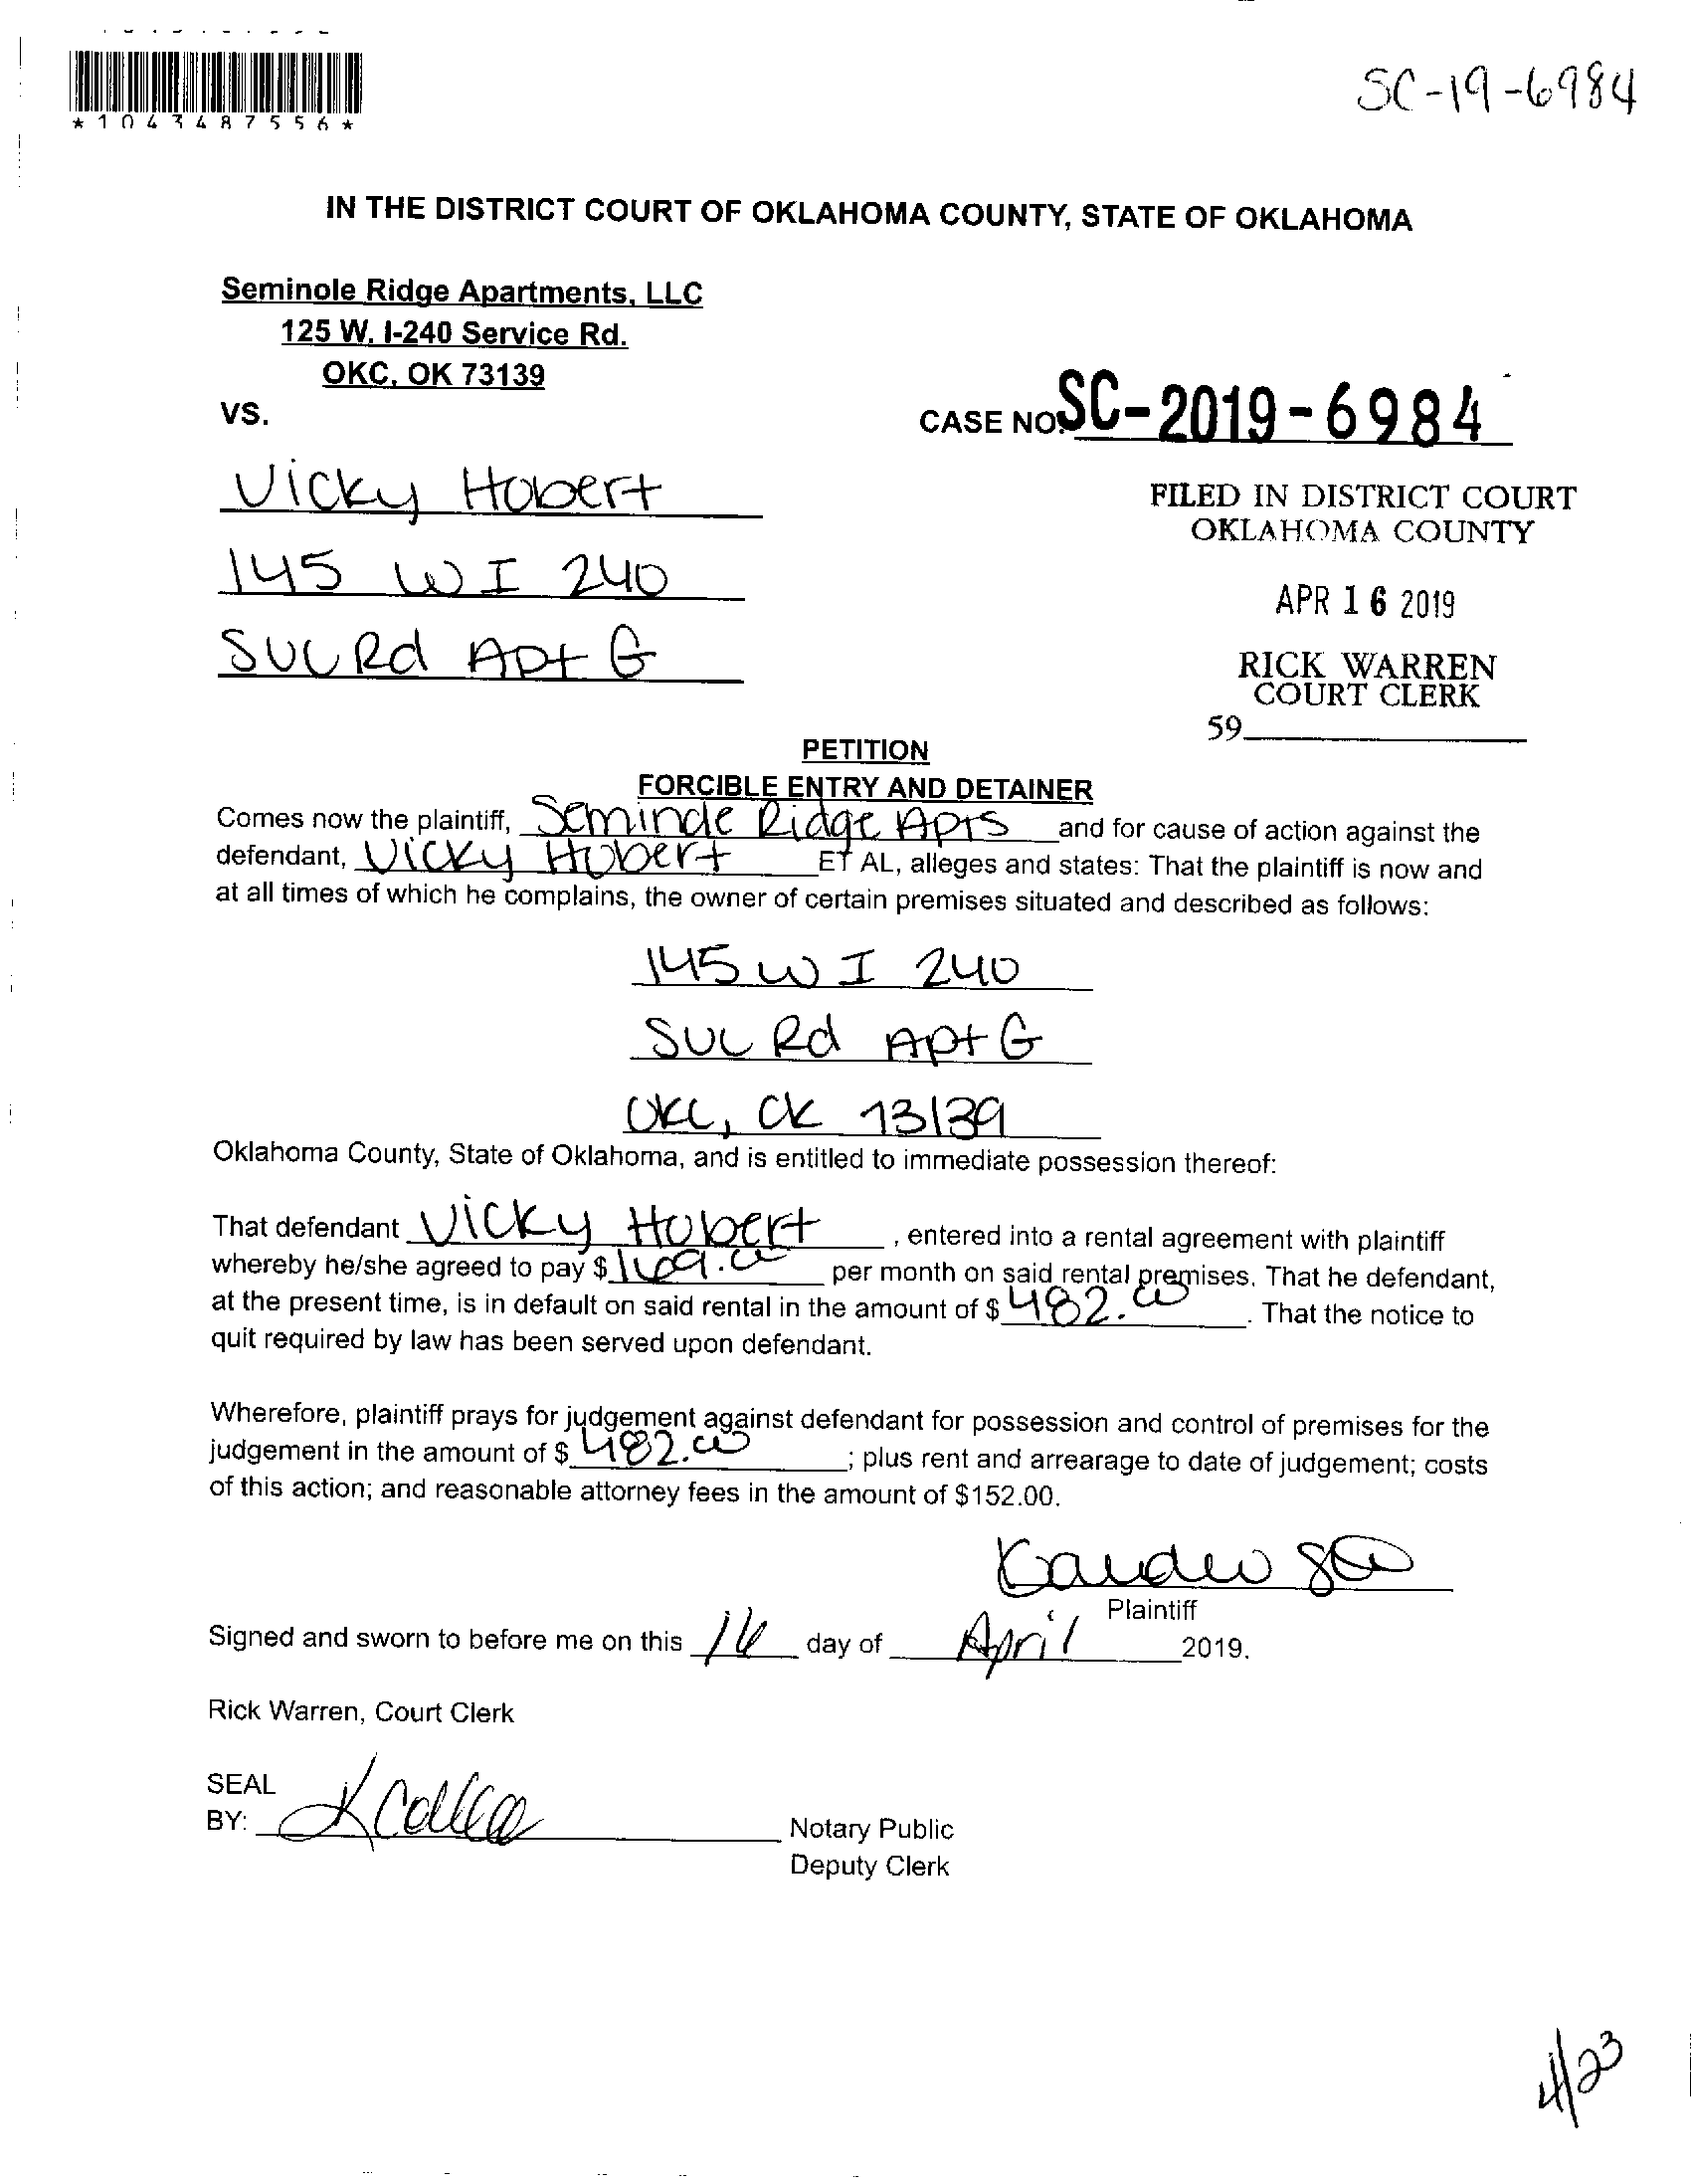 *1043487556*
SC-19-6984
IN THE DISTRICT COURT OF OKLAHOMA COUNTY, STATE OF OKLAHOMA
Seminole Ridge Apartments, LLC
125 W. I-240 Service Rd.
OKC, OK 73139
VS.
CASE NO. SC-2019-6984
Vicky Hobert
145 W I 240
SVC Rd Apt G
FILED IN DISTRICT COURT
OKLAHOMA COUNTY
APR 16 2019
RICK WARREN
COURT CLERK
59
PETITION
FORCIBLE ENTRY AND DETAINER
Comes now the plaintiff, Seminole Ridge Apts and for cause of action against the
defendant, Vicky Hobert ET AL, alleges and states: That the plaintiff is now and
at all times of which he complains, the owner of certain premises situated and described as follows:
145 W I 240
SVC Rd Apt G
OKC, OK 73139
Oklahoma County, State of Oklahoma, and is entitled to immediate possession thereof:
That defendant Vicky Hobert, entered into a rental agreement with plaintiff
whereby he/she agreed to pay $ 169.00 per month on said rental premises. That he defendant,
at the present time, is in default on said rental in the amount of $ 482.00. That the notice to
quit required by law has been served upon defendant.
Wherefore, plaintiff prays for judgement against defendant for possession and control of premises for the
judgement in the amount of $ 482.00; plus rent and arrearage to date of judgement; costs
of this action; and reasonable attorney fees in the amount of $152.00.
Plaintiff
Signed and sworn to before me on this 16 day of April 2019.
Rick Warren, Court Clerk
SEAL
BY:
Notary Public
Deputy Clerk
4/23